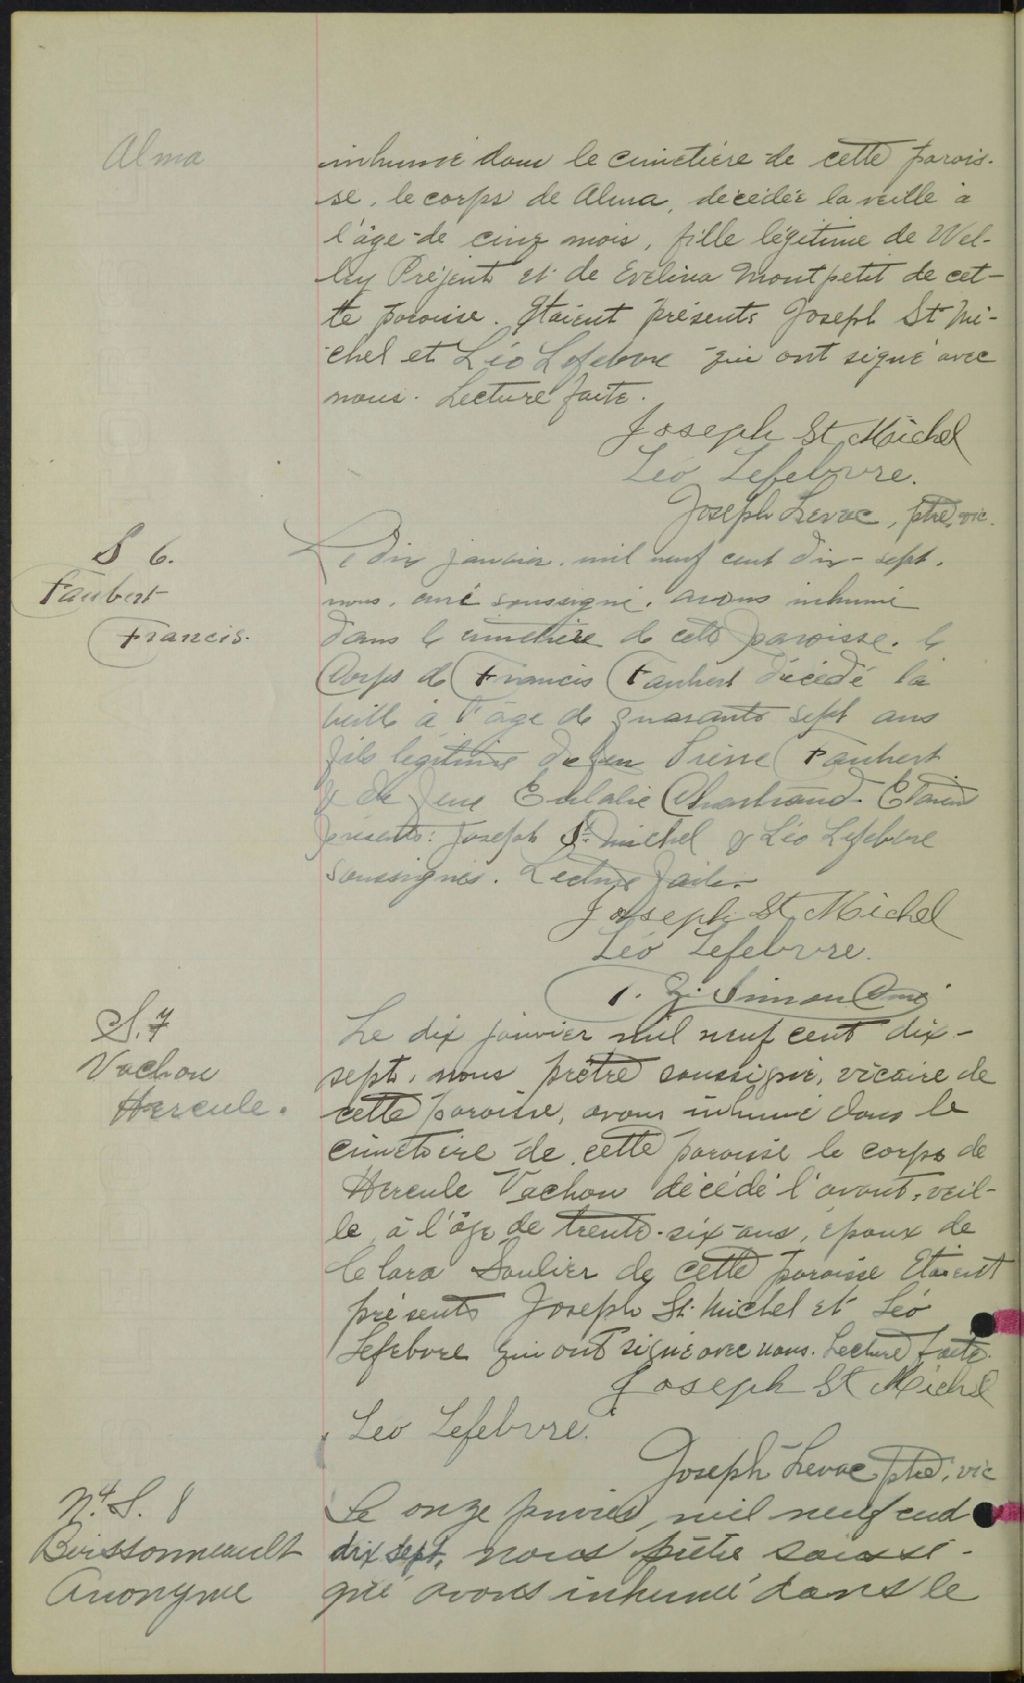 Alma
inhumé dans le cimetière de cette parois-
se, le corps de Alma, décédée la veille à
l'âge de cinq mois, fille légitime de Wel-
ley Préjent et de Evelina Montpetit de cet-
te paroisse. Etaient présents Joseph St Mi-
chel et Léo Lefebvre qui ont signé avec
nous. Lecture faite.
Joseph St Michel
Léo Lefebvre.
Joseph Levac, ptre, vic.
S 6.
Faubert
Francis.
Le dix janvier mil neuf cent dix-sept,
nous, curé soussigné, avons inhumé
dans le cimetière de cette paroisse, le
Corps de Francis Faubert décédé la
veille à l'âge de quarante sept ans
fils légitime de feu Pierre Faubert
& de feue Eulalie Chartrand. Etaient
présents: Joseph St. Michel & Léo Lefebvre
soussignés. Lecture faite.
Joseph St Michel
Léo Lefebvre.
Simon Curé
S. 7
Vachon
Hercule.
Le dix janvier mil neuf cent dix-
sept, nous prêtre soussigné, vicaire de
cette paroisse, avons inhumé dans le
cimetière de cette paroisse le corps de
Hercule Vachon décédé l'avant-veil-
le, à l'âge de trente-six ans, époux de
Clara Soulier de cette paroisse Etaient
présents Joseph St-Michel et Léo
Lefebvre qui ont signé avec nous. Lecture faite.
Joseph St Michel
Leo Lefebvre.
Joseph Levac ptre, vic
N.t S. 8
Boissonneault
Anonyme
Le onze janvier, mil neuf cent
dix sept, nous prêtre soussi-
gné avons inhumé dans le